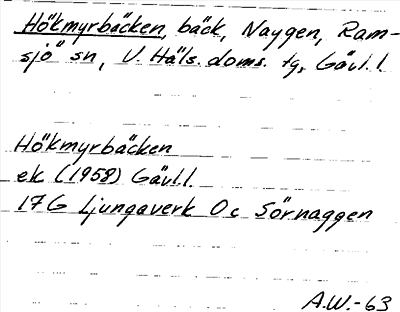 Hökmyrbäcken, bäck, Naggen, Ram-
sjö sn, V. Häls. doms. tg, Gävl. l.
Hökmyrbäcken
ek (1958) Gävl.l.
17G Ljungaverk 0c Sörnaggen
A.W.-63